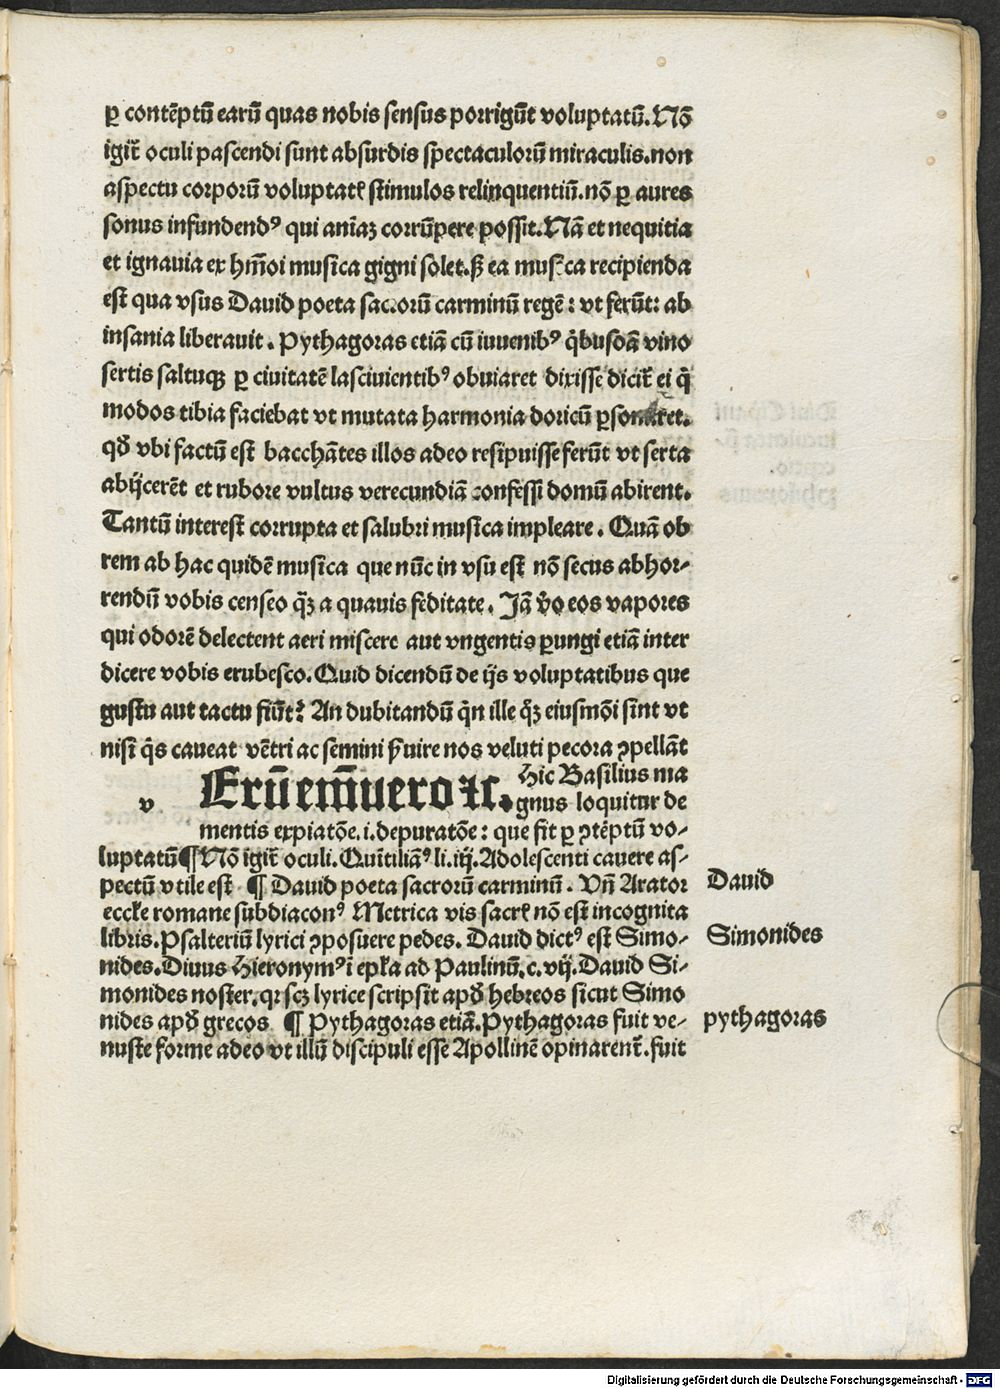 ꝑ contēptū earū quas nobis sensus porrigūt voluptatū. Nō
igit̄ oculi pascendi sunt absurdis spectaculorū miraculis. non
aspectu corporū voluptatꝭ stimulos relinquentiū. nō ꝑ aures
sonus infundendꝰ qui aīaꝫ corrūpere possit. Nā et nequitia
et ignauia ex hm̄oi musica gigni solet. ꝫ ea musica recipienda
est qua vsus Dauid poeta sacrorū carminū regē: vt ferūt: ab
insania liberauit. Pythagoras etiā cū iuuenibꝰ q̇busdā vino
sertis saltuqꝫ ꝑ ciuitatē lasciuientibꝰ obuiaret dixisse dicit̄ ei q̇
modos tibia faciebat vt mutata harmonia doricū ꝑsonaret.
qđ vbi factū est bacchātes illos adeo resipuisse ferūt vt serta
abijcerēt et rubore vultus verecundiā confessi domū abirent.
Tantū interest corrupta et salubri musica impleare. Quā ob
rem ab hac quidē musica que nūc in vsu est nō secus abhor-
rendū vobis censeo q̄ꝫ a quauis feditate. Jā v̊o eos vapores
qui odorē delectent aeri miscere aut vngentis ꝑungi etiā inter
dicere vobis erubesco. Quid dicendū de ijs voluptatibus que
gustu aut tactu fiūt? An dubitandū q̇n ille q̄ꝫ eiusmōi sint vt
nisi q̇s caueat vētri ac semini ẜuire nos veluti pecora ꝯpellāt
v
Erūem̄uero ⁊c. Hic Basilius ma
gnus loquitur de
mentis expiatōe. i. depuratōe: que fit ꝑ ꝯtēptū vo-
luptatū ¶ Nō igit̄ oculi. Quītiliāꝰ li. iij. Adolescenti cauere as-
pectū vtile est ¶ Dauid poeta sacrorū carminū. Vn̄ Arator
eccłe romane subdiaconꝰ Metrica vis sacrꝭ nō est incognita
libris. Psalteriū lyrici ꝯposuere pedes. Dauid dictꝰ est Simo-
nides. Diuus Hieronymꝰ ī epła ad Paulinū. c. vij. Dauid Si-
monides noster. qꝛ scꝫ lyrice scripsit apđ hebreos sicut Simo
nides apđ grecos ¶ Pythagoras etiā. Pythagoras fuit ve-
nuste forme adeo vt illū discipuli esse Apollinē opinarent̄. fuit
Dauid
Simonides
pythagoras
Digitalisierung gefördert durch die Deutsche Forschungsgemeinschaft - DFG